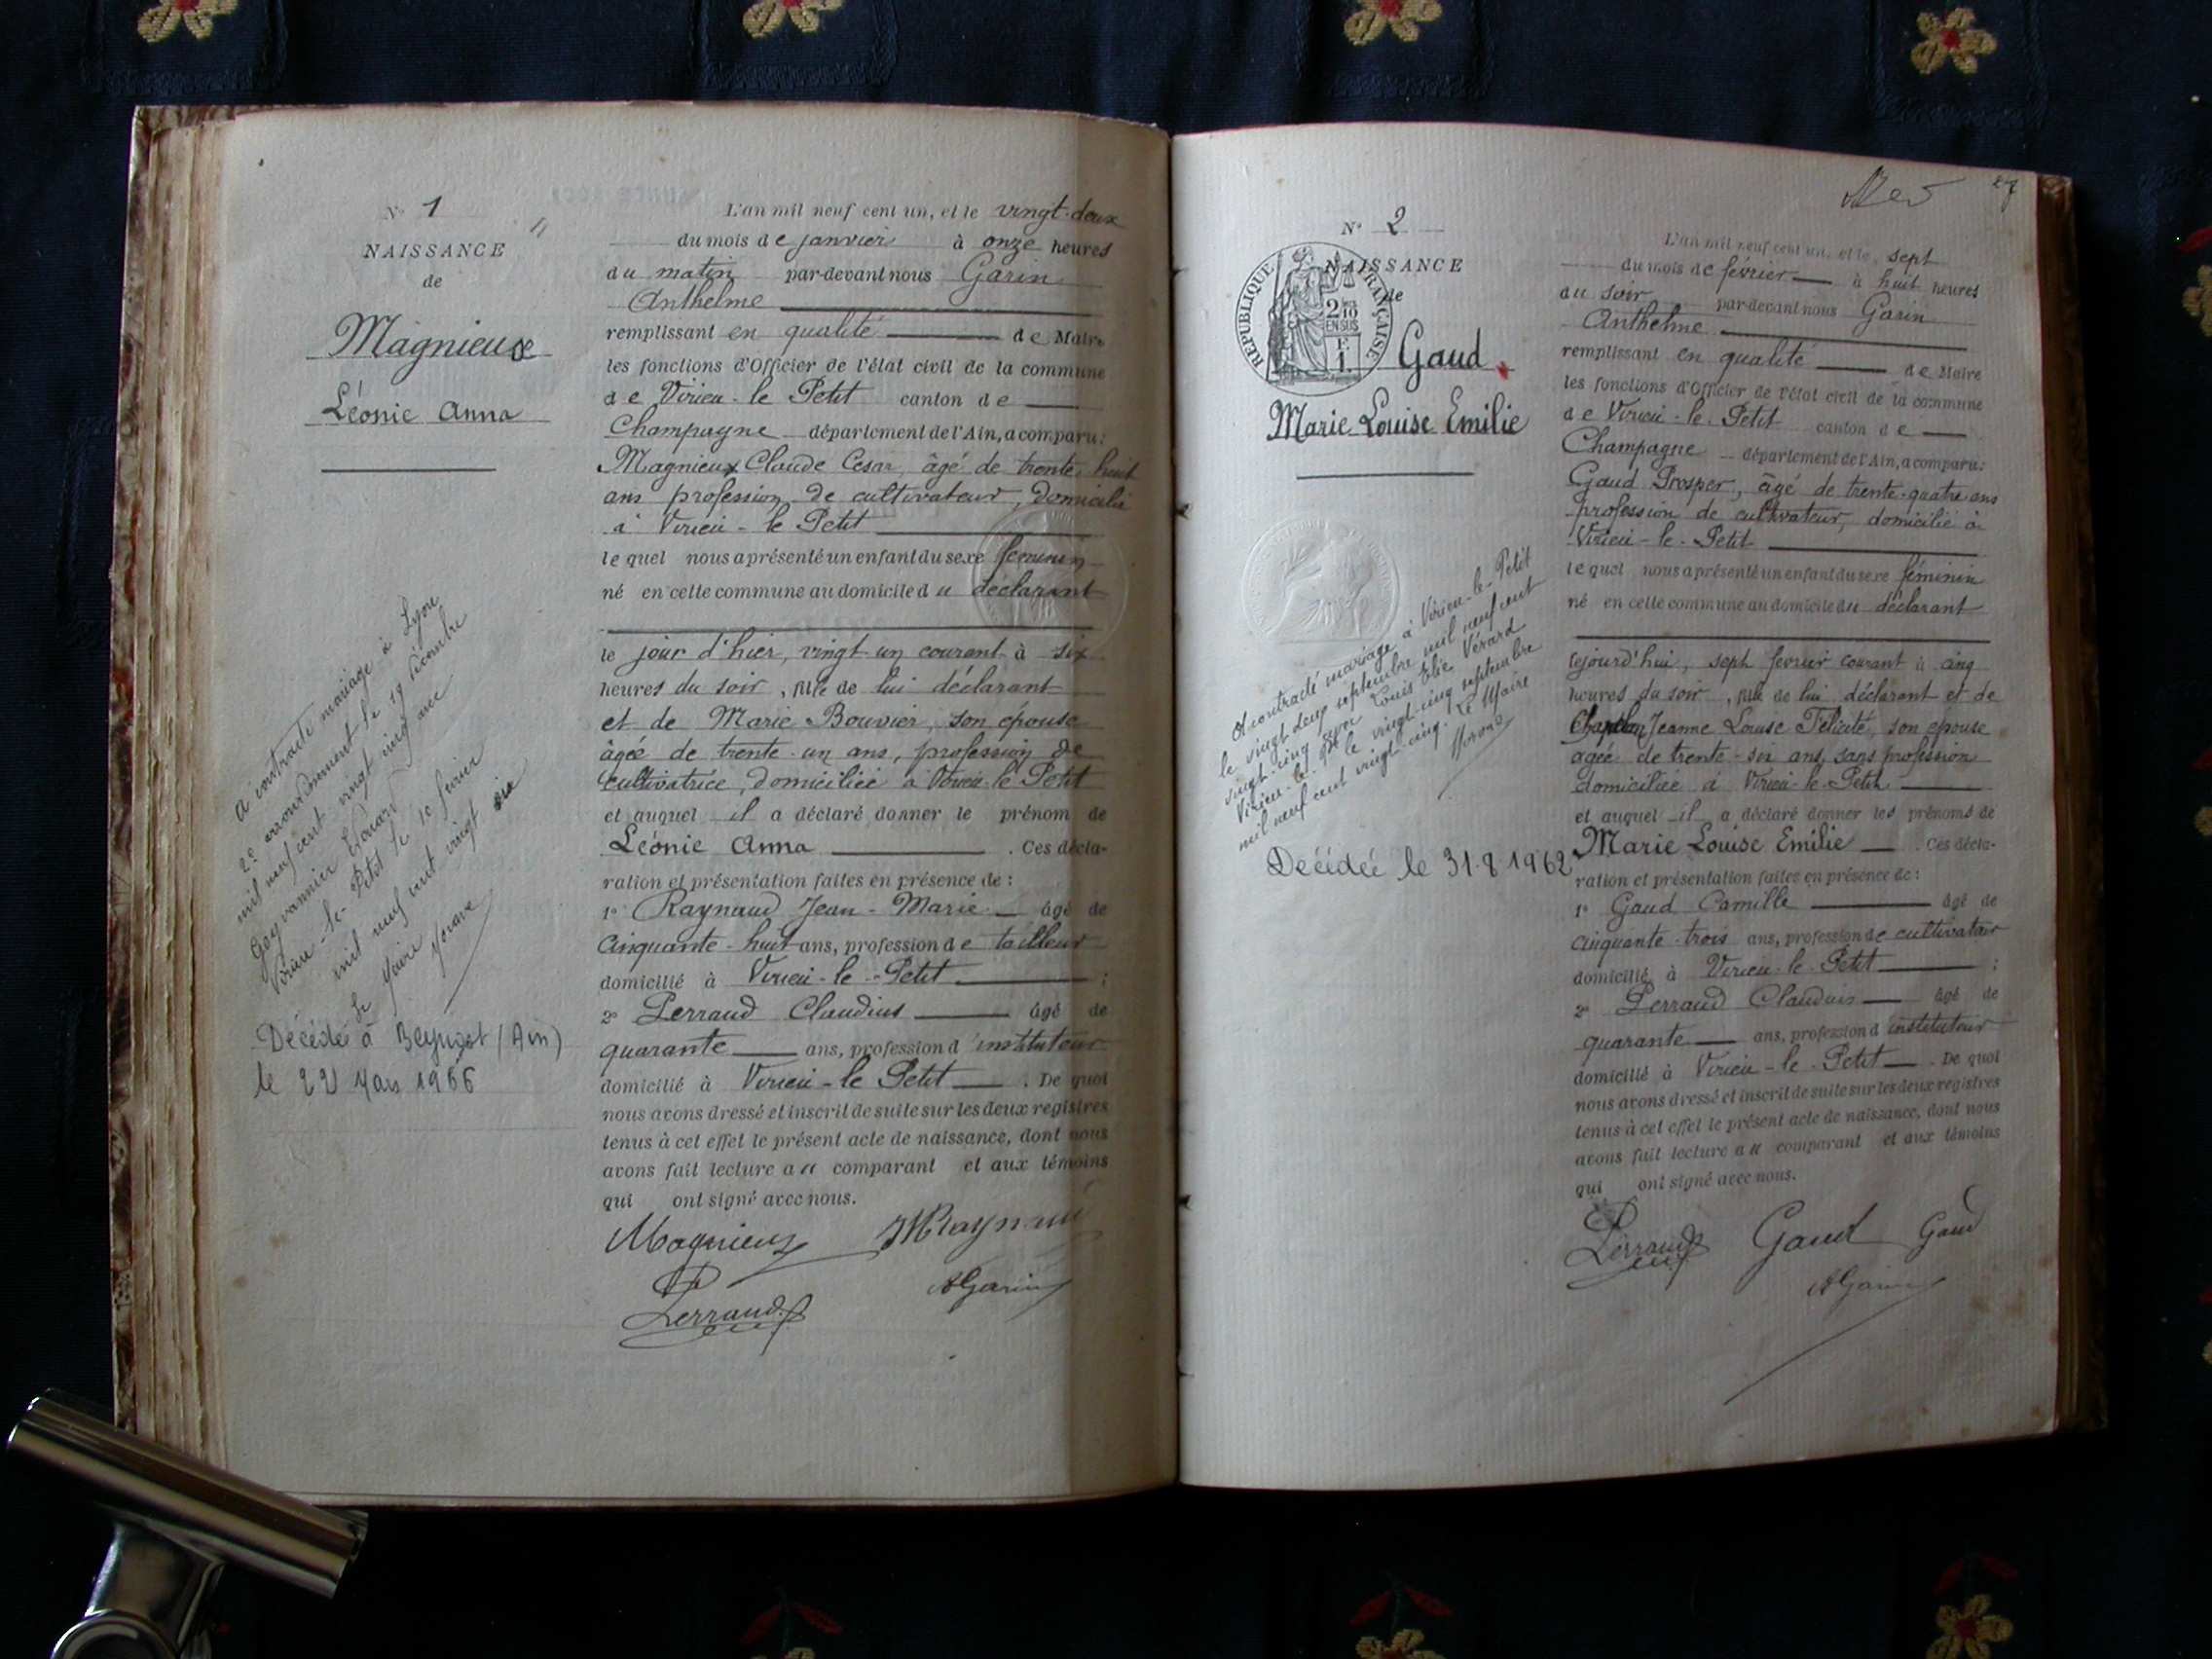 N° 1
NAISSANCE
de
Magnieux
Léonie Anna
A contracté mariage à Lyon
2e arrondissement le 19 décembre
mil neuf cent vingt cinq avec
Edouard
Virieu-le-Petit le 10 février
mil neuf cent vingt six
Le Maire
Décédé à Beynost (Ain)
le 22 Mars 1966
L'an mil neuf cent un, et le vingt-deux
du mois de janvier à onze heures
du matin par-devant nous Garin
Anthelme
remplissant en qualité de Maire
les fonctions d'Officier de l'état civil de la commune
de Virieu-le Petit canton de
Champagne département de l'Ain, a comparu:
Magnieux Claude Cesar, âgé de trente-huit
ans profession de cultivateur, domicilié
à Virieu-le Petit
lequel nous a présenté un enfant du sexe féminin
né en cette commune au domicile du déclarant
le jour d'hier, vingt-un courant à six
heures du soir, fille de lui déclarant
et de Marie Bouvier, son épouse
âgée de trente-un ans, profession de
cultivatrice, domiciliée à Virieu-le Petit
et auquel il a déclaré donner le prénom de
Léonie Anna . Ces décla-
ration et présentation faites en présence de:
1° Raynaud Jean-Marie âgé de
cinquante-huit ans, profession de tailleur
domicilié à Virieu-le-Petit ;
2° Perraud Claudius âgé de
quarante ans, profession d'instituteur
domicilié à Virieu-le Petit . De quoi
nous avons dressé et inscrit de suite sur les deux registres
tenus à cet effet le présent acte de naissance, dont nous
avons fait lecture au comparant et aux témoins
qui ont signé avec nous.
Magnieux JMRaynaud
Perraud AGarin
27
N° 2
NAISSANCE
de
RÉPUBLIQUE FRANÇAISE
2/10
EN SUS
1 F.
Gaud
Marie Louise Emilie
A contracté mariage à Virieu-le-Petit
le vingt deux septembre mil neuf cent
vingt-cinq avec Louis Elie Vérard
Virieu-le-Pt le vingt-cinq septembre
mil neuf cent vingt-cinq. Le Maire
Décédée le 31-8 1962
L'an mil neuf cent un, et le sept
du mois de février à huit heures
du soir par-devant nous Garin
Anthelme
remplissant en qualité de Maire
les fonctions d'Officier de l'état civil de la commune
de Virieu-le-Petit canton de
Champagne département de l'Ain, a comparu:
Gaud Prosper, âgé de trente-quatre ans
profession de cultivateur, domicilié à
Virieu-le-Petit
lequel nous a présenté un enfant du sexe féminin
né en cette commune au domicile du déclarant
le jourd'hui, sept février courant à cinq
heures du soir, fille de lui déclarant et de
Jeanne Louise Félicité, son épouse
âgée de trente-six ans, sans profession
domiciliée à Virieu-le-Petit
et auquel il a déclaré donner les prénoms de
Marie Louise Emilie . Ces décla-
ration et présentation faites en présence de:
1° Gaud Camille âgé de
cinquante-trois ans, profession de cultivateur
domicilié à Virieu-le-Petit ;
2° Perraud Claudius âgé de
quarante ans, profession d'instituteur
domicilié à Virieu-le-Petit . De quoi
nous avons dressé et inscrit de suite sur les deux registres
tenus à cet effet le présent acte de naissance, dont nous
avons fait lecture au comparant et aux témoins
qui ont signé avec nous.
Perraud Gaud Gaud
AGarin